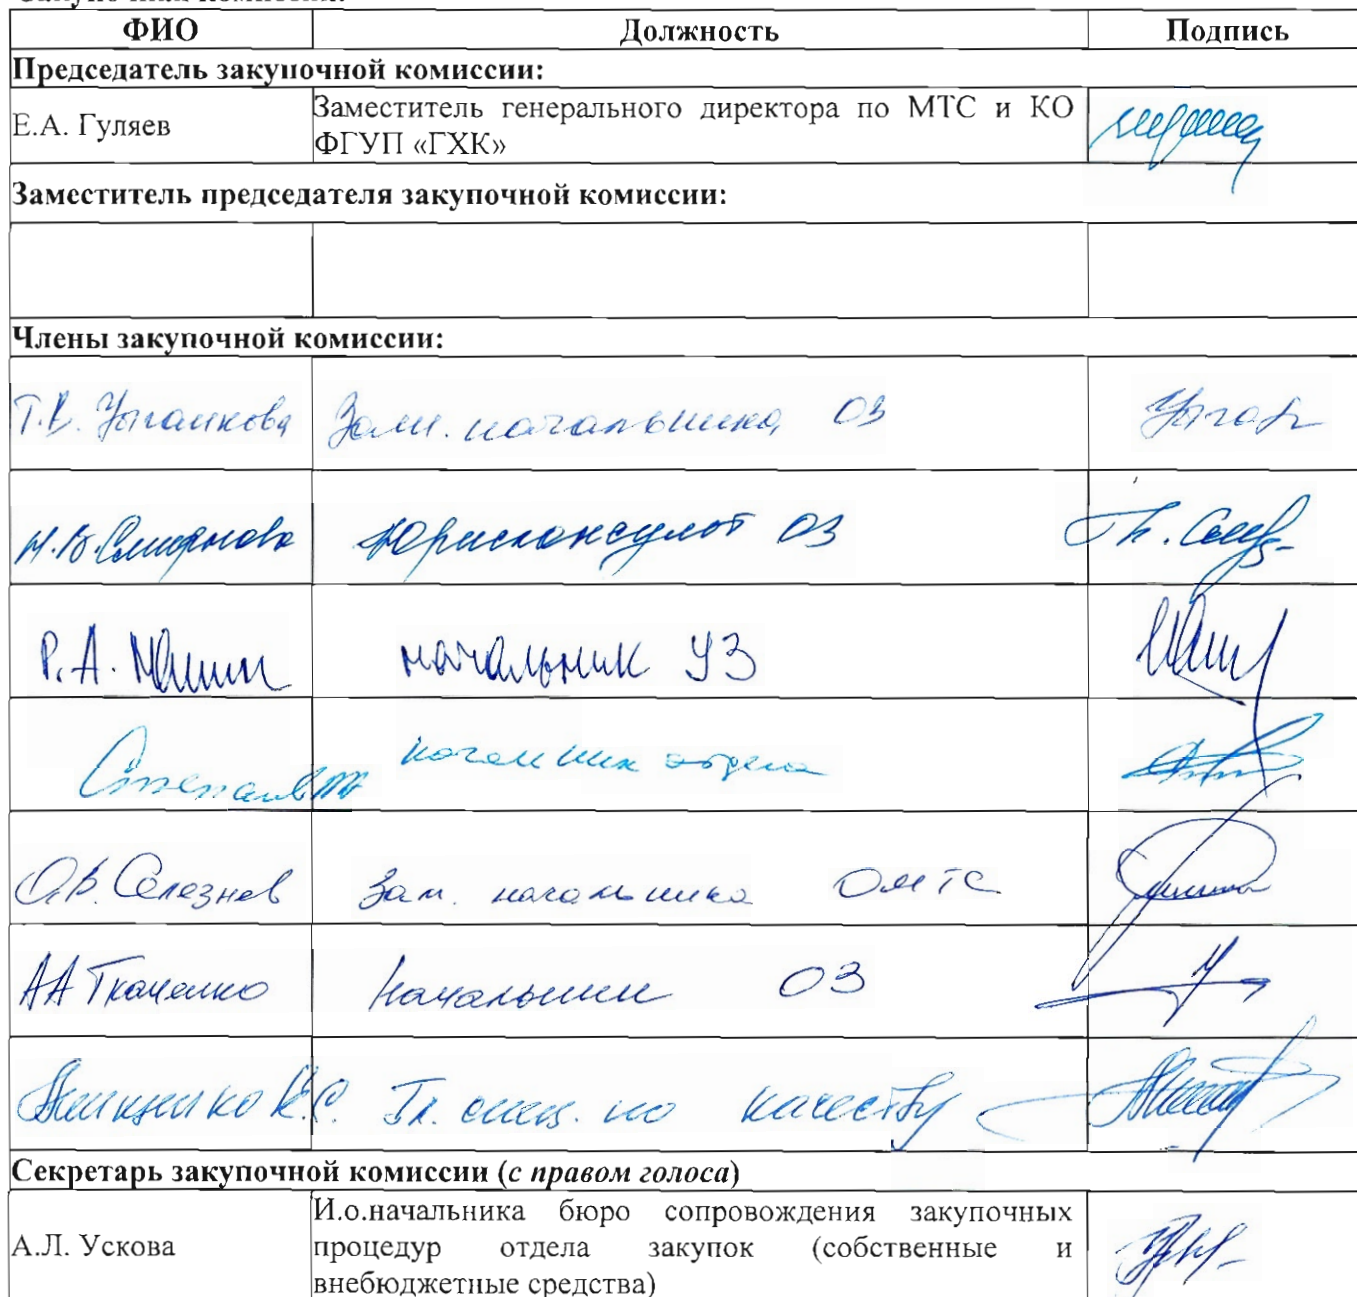 ФИО Должность Подпись
Председатель закупочной комиссии:
Е.А. Гуляев
Заместитель генерального директора по МТС и КО
ФГУП «ГХК»
Заместитель председателя закупочной комиссии:
Члены закупочной комиссии:
Т.В. Цыганкова Зам. начальника ОЗ
Н.В. Смирнова Юрисконсульт ОЗ
Р.А. Машин начальник УЗ
начальник отдела
О.В. Селезнев Зам. начальника ОМТС
АА Ткаченко Начальник ОЗ
Гл. спец. по качеству
Секретарь закупочной комиссии (с правом голоса)
А.Л. Ускова
И.о.начальника бюро сопровождения закупочных
процедур отдела закупок (собственные и
внебюджетные средства)